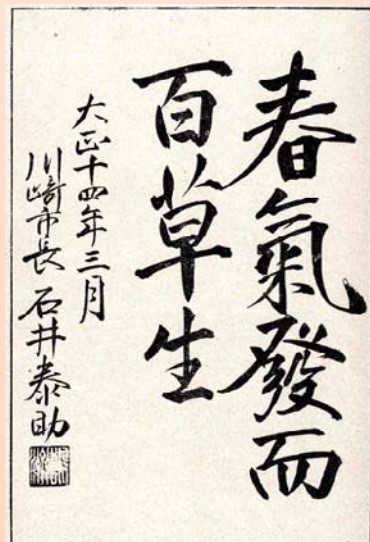 春氣發而
百草生
大正十四年三月
川崎市長 石井泰助